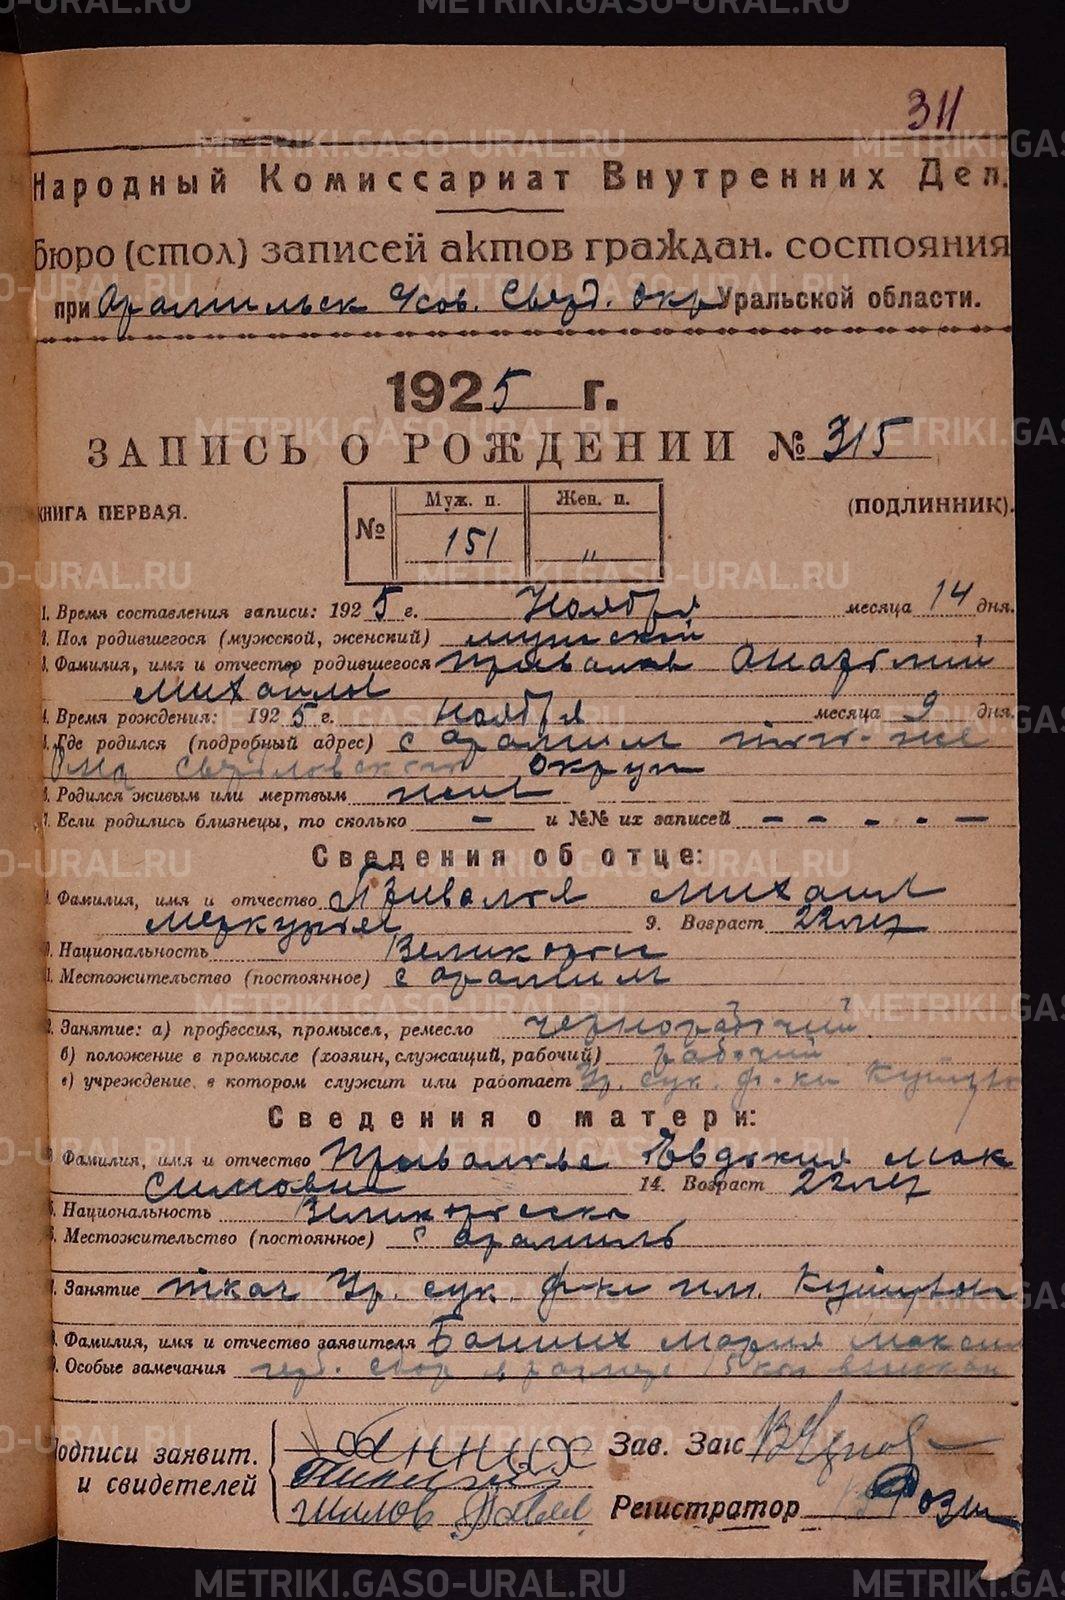 311
Народный Комиссариат Внутренних Дел.
бюро (стол) записей актов граждан. состояния
при Арамильск с/сов. Сверд. окр Уральской области.
1925 г.
ЗАПИСЬ О РОЖДЕНИИ № 315
КНИГА ПЕРВАЯ.
№ Муж. п. Жен. п.
151 "
(ПОДЛИННИК).
1. Время составления записи: 1925 г. Ноября месяца 14 дня.
2. Пол родившегося (мужской, женский) мужской
3. Фамилия, имя и отчество родившегося Привалов Анатолий
Михайлов
4. Время рождения: 1925 г. Ноября месяца 9 дня.
5. Где родился (подробный адрес) с Арамиль
Свердловского округа
6. Родился живым или мертвым живой
7. Если родились близнецы, то сколько — и №№ их записей — — — — —
Сведения об отце:
8. Фамилия, имя и отчество Привалов Михаил
Меркурьев 9. Возраст 22 лет
10. Национальность Великоросс
11. Местожительство (постоянное) с Арамиль
12. Занятие: а) профессия, промысел, ремесло чернорабочий
б) положение в промысле (хозяин, служащий, рабочий) рабочий
в) учреждение, в котором служит или работает Ур. сук. ф-ки
Сведения о матери:
13. Фамилия, имя и отчество Привалова Евдокия Мак
симовна 14. Возраст 22 лет
15. Национальность Великоросска
16. Местожительство (постоянное) с Арамиль
17. Занятие ткач Ур. сук. ф-ки им.
18. Фамилия, имя и отчество заявителя Банных Мария Максим
19. Особые замечания герб. сбор в размере 15 коп взыскан
Подписи заявит.
и свидетелей
Банных
Шилов Павел
Зав. Загс
Регистратор
METRIKI.GASO-URAL.RU